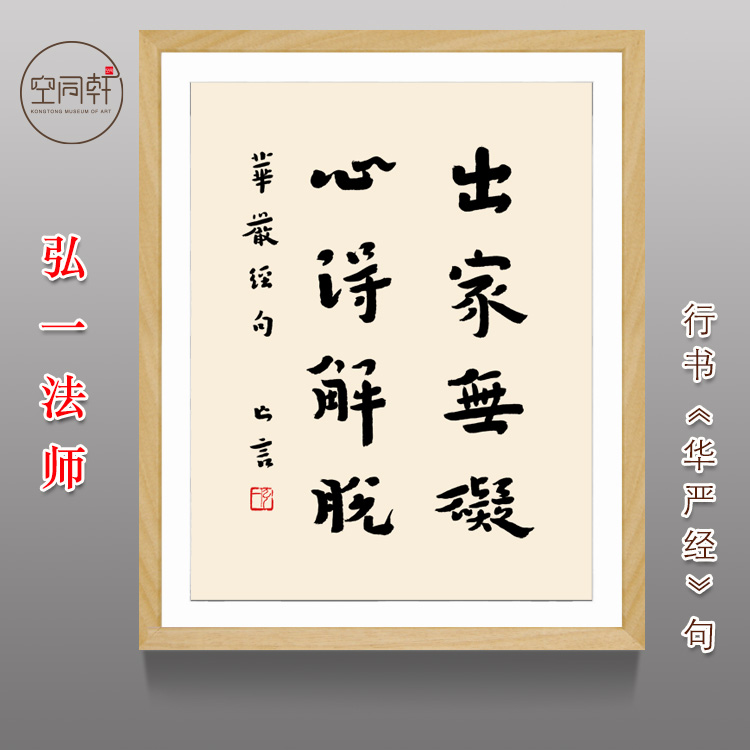 空同轩
KONGTONG MUSEUM OF ART
弘一法师
出家無礙
心得解脱
華嚴經句
亡言
行书《华严经》句